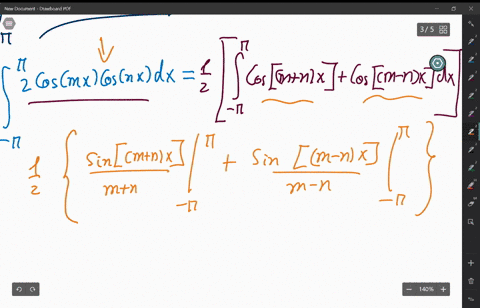 New Document - Drawboard PDF
3 / 5
π
∫_{-π}^{π} 2 Cos(mx) Cos(nx) dx = 1/2 [ ∫_{-π}^{π} Cos[(m+n)x] + Cos[(m-n)x] dx ]
1/2 { sin[(m+n)x]/(m+n) |_{-π}^{π} + Sin[(m-n)x]/(m-n) |_{-π}^{π} }
140%